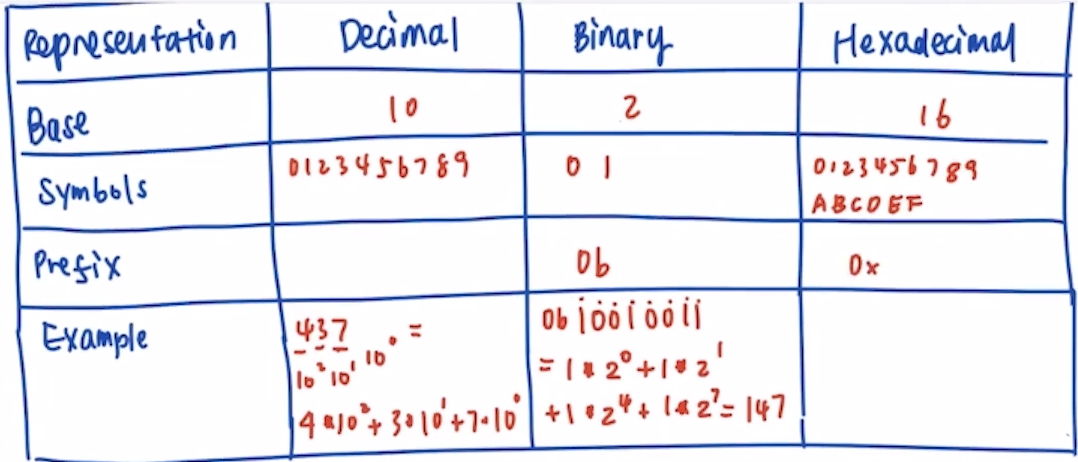 Representation Decimal Binary Hexadecimal
Base 10 2 16
Symbols 0123456789 0 1 0123456789
ABCDEF
Prefix 0b 0x
Example
437 =
10² 10¹ 10⁰
4*10²+3*10¹+7*10⁰
0b10010011
=1*2⁰+1*2¹
+1*2⁴+1*2⁷=147